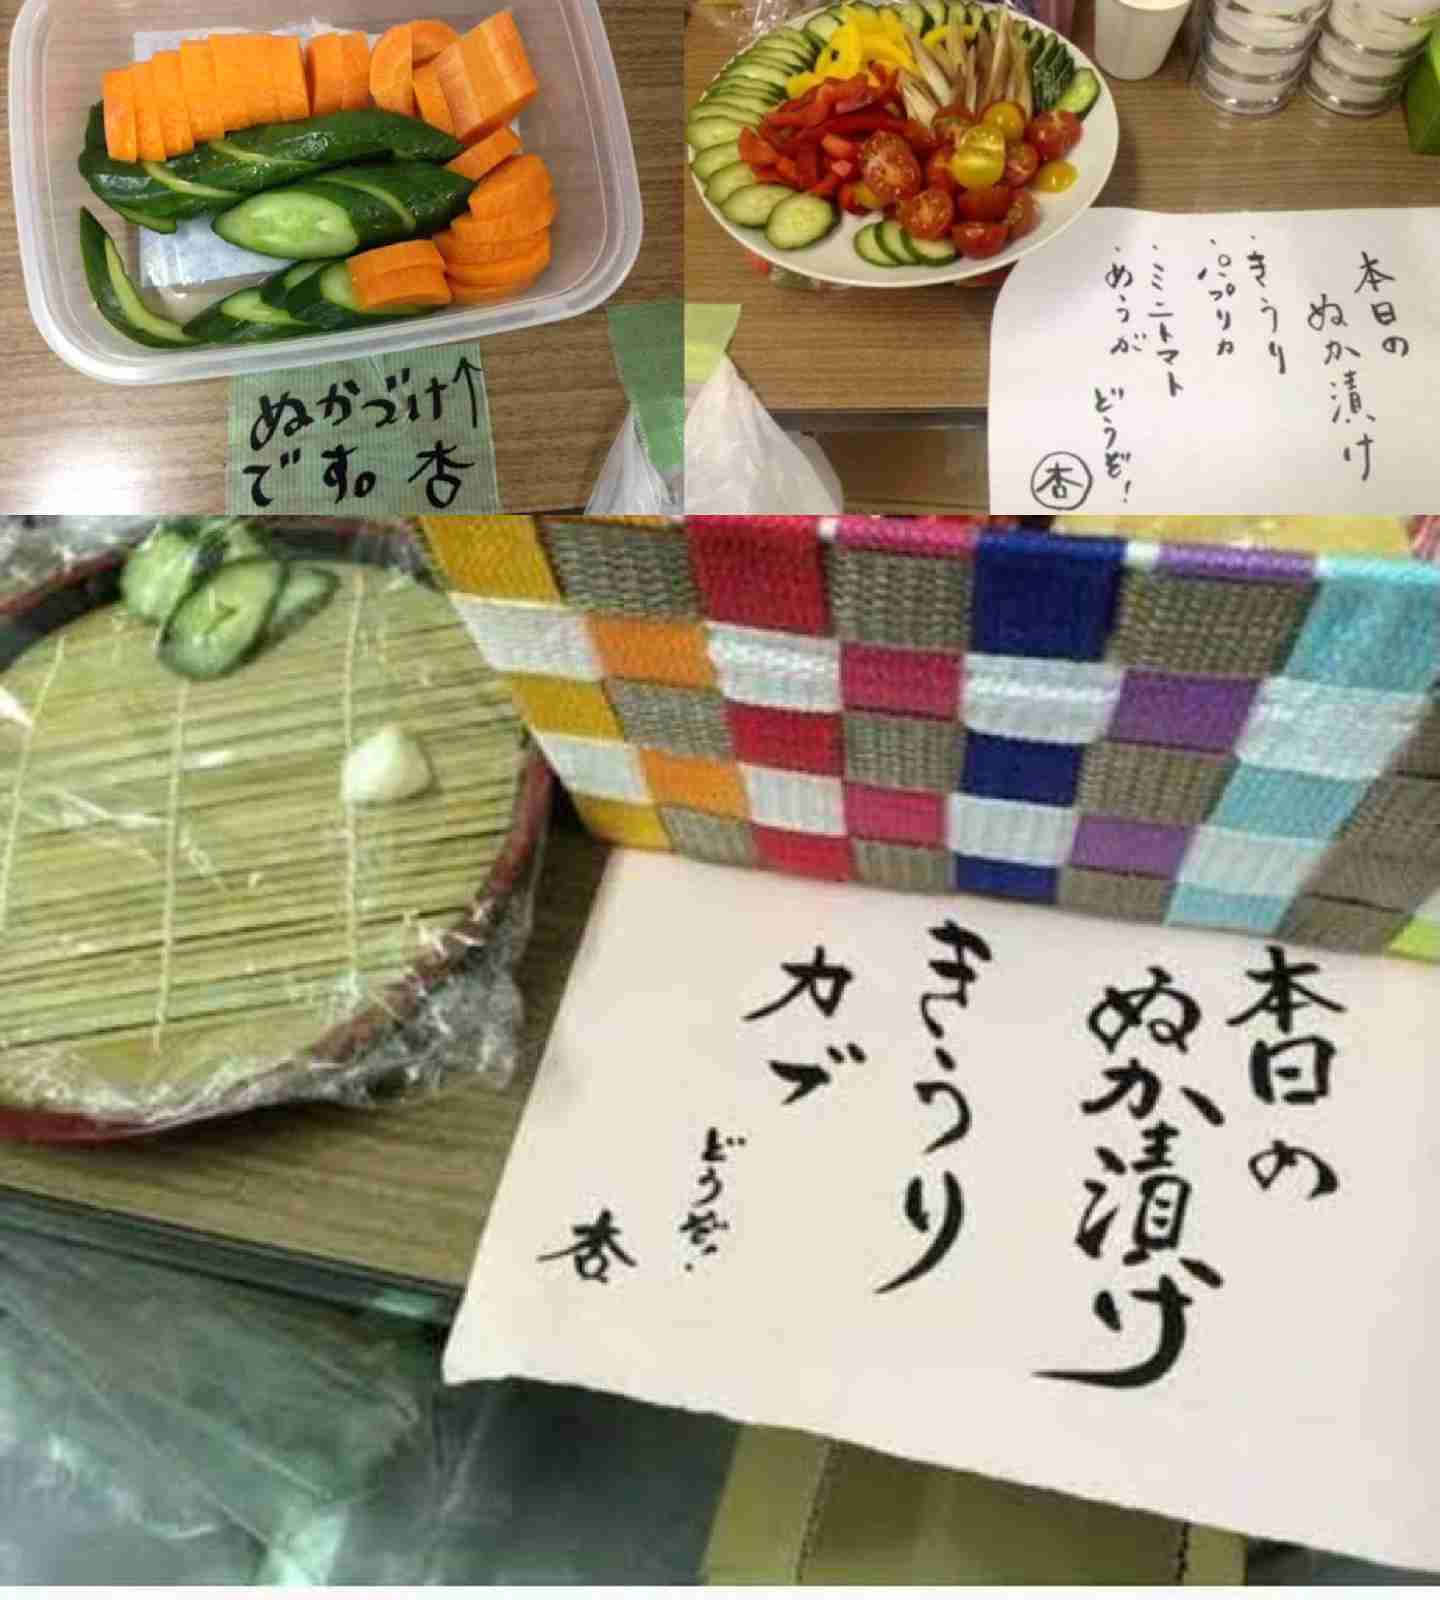 ぬかづけ↑
です。杏
本日の
ぬか漬け
・きうり
・パプリカ
・ミニトマト
・めうが
どうぞ！
杏
本日の
ぬか漬け
きうり
カブ
どうぞ！
杏